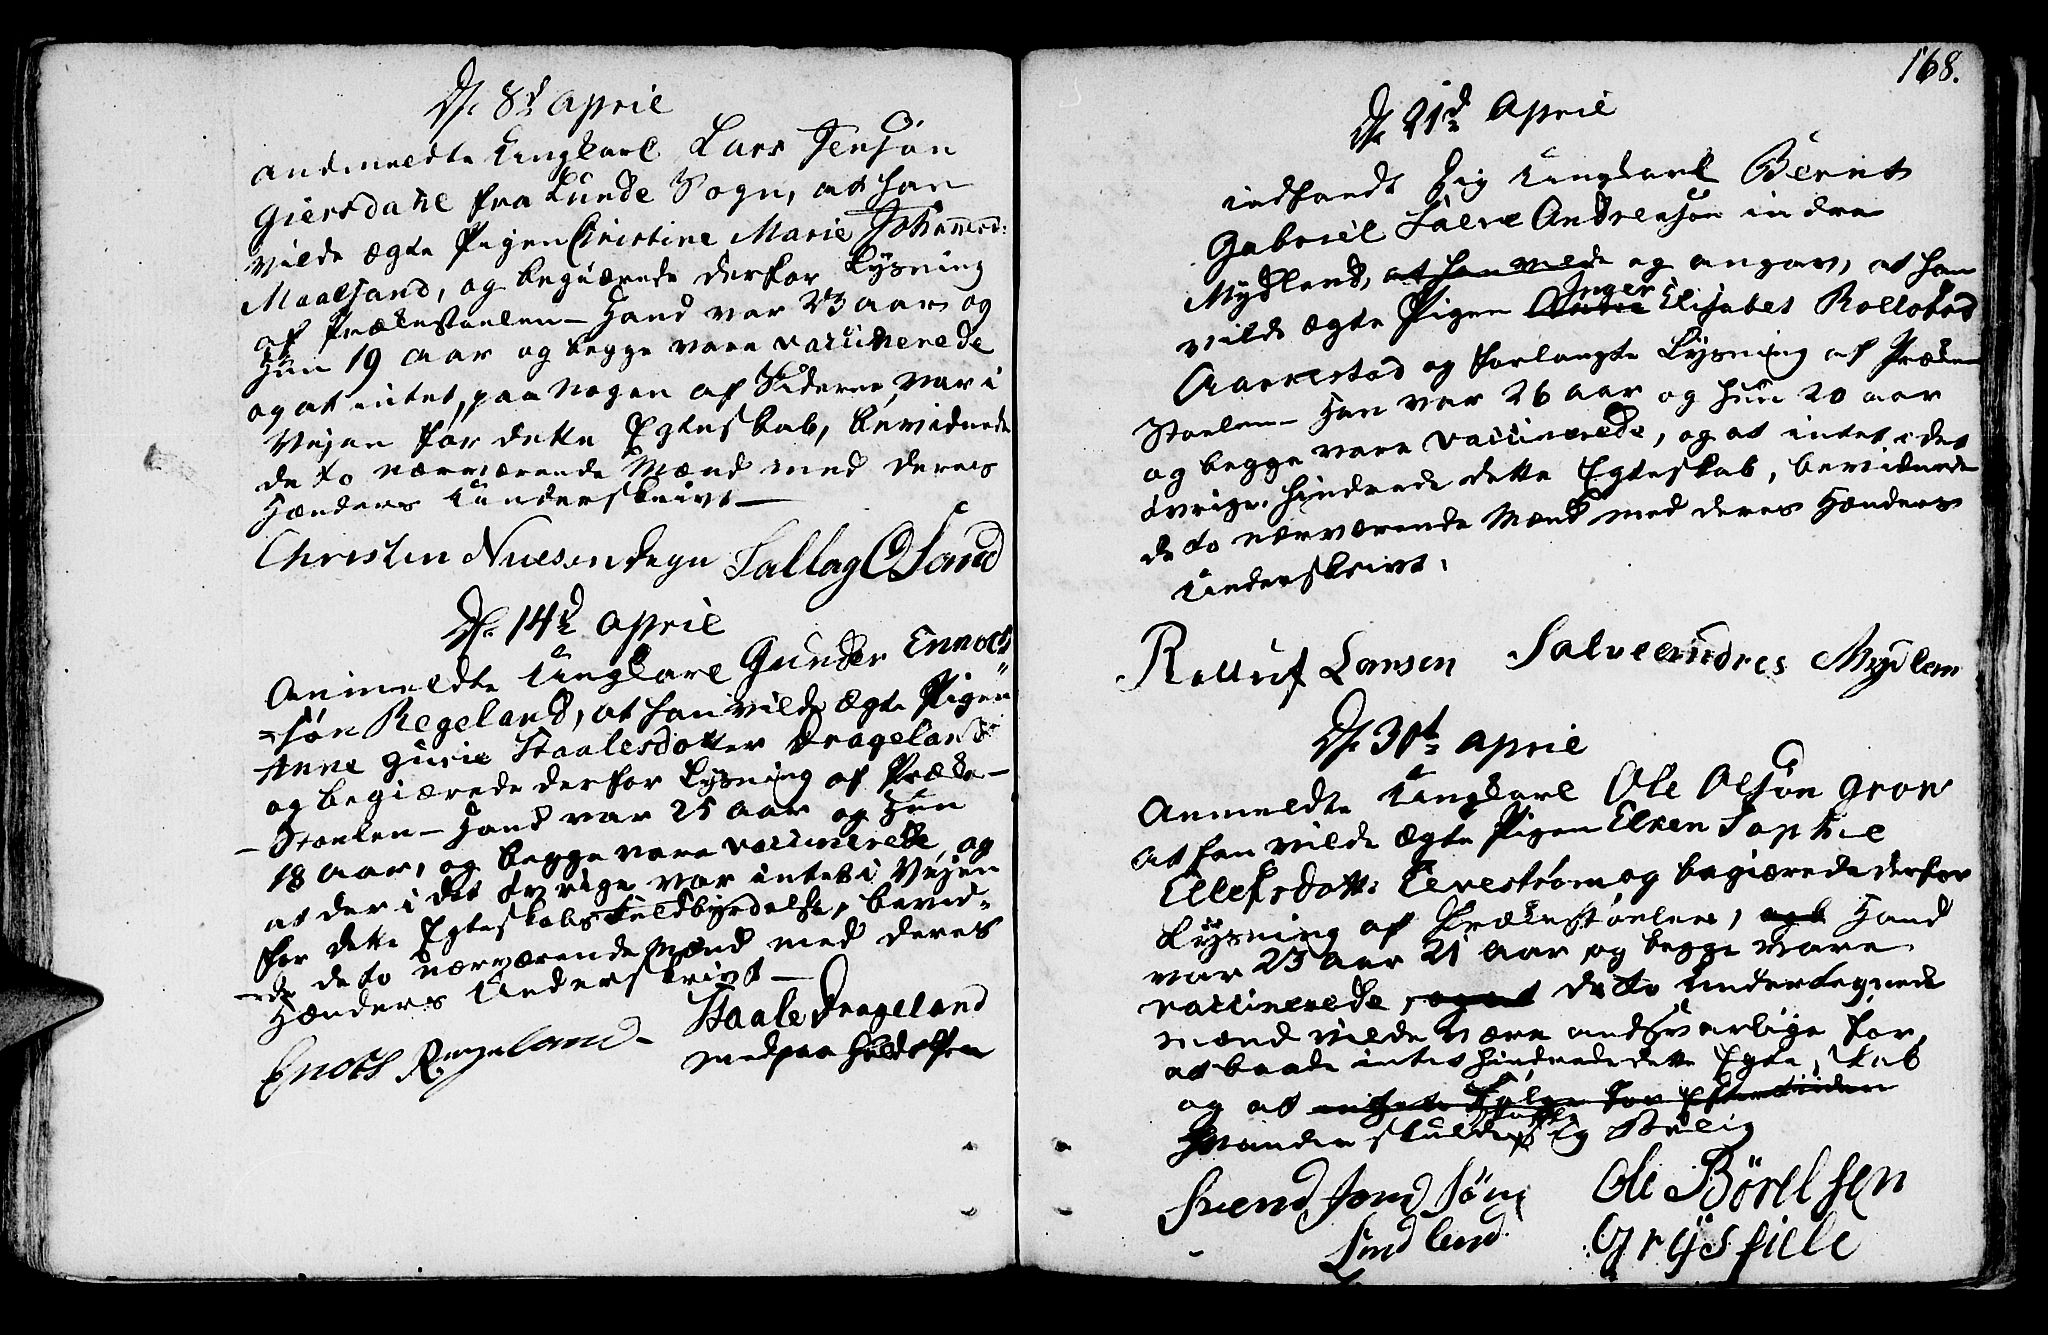 D. 8d April
Andmeldte Ungkarl Lars Jensøn
Giersdahl fra Lunde Sogn, at han
vilde ægte Pigen Christine Marie
Maalsand, og begiærede derfor Lysning
af Prækestoelen – Hand var 23 aar og
Hun 19 aar og begge vare vaccinerede
og at intet, paa nogen af Siderne, var i
Vejen for dette Egteskab, bevidnede
de to nærværende Mænd med deres
Hænders Underskrivt –
Christen Nielsen degn Tallag O Sand
D. 14d April
Anmeldte Ungkarl Gunder Ennoch
=søn Regeland, at han vilde ægte Pigen
Anne Gurie Staalesdotter Drageland
og begiærede derfor Lysning af Præke–
–Stoelen – Hand var 25 aar og Hun
18 aar, og begge vare vaccinerede, og
at der i det øvrige var intet i Vejen
for dette Egteskabs Fuldbyrdelse, bevid=
–ede de to nærværende Mænd med deres
Hænders Underskrivt –
Enoch Regeland – Staale Drageland
med paa holden Pen
168.
D. 21d April
indfandt sig Ungkarl Bernt
Gabriel Salve Andresøn indre
Mydland, at han vilde og angav, at han
Inger
vilde ægte Pigen Elisabet Rollofsd
Aarrestad og forlangte Lysning af Præke
Stoelen – Han var 26 aar og hun 20 aar
og begge vare vaccinerede, og at intet i det
øvrige hindrede dette Egteskab, bevidnede
de to nærværende Mænd med deres Hænders
Underskrivt.
Rolluf Larsen Salve Andres Mydland
D. 30t April
Anmeldte Ungkarl Ole Olsøn Grow
at han vilde ægte Pigen Elken Sophie
Ellefsdott: og begiærede derfor
Lysning af Prækestoelen, Hand
var 23 aar 21 aar og begge vare
vaccinerede, og at de to Undertegnede
mænd vilde være andsvarlige for,
at baade intet hindrede dette Egte Skab
og at
skulde Sig
Svend Jons Søn Ole Børelsen
Sindland Grydsfield